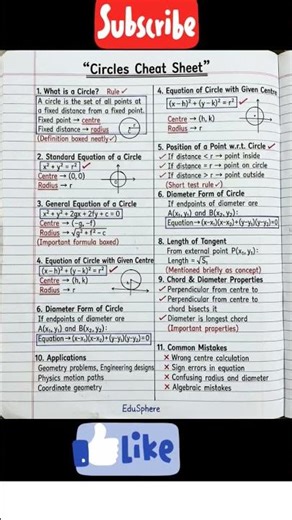 Subscribe
"Circles Cheat Sheet"
1. What is a Circle? Rule ✓
A circle is the set of all points at
a fixed distance from a fixed point.
Fixed point → centre
Fixed distance → radius
(Definition boxed neatly✓)
2. Standard Equation of a Circle
x² + y² = r² ✓
Centre → (0, 0)
Radius → r
3. General Equation of a Circle
x² + y² + 2gx + 2fy + c = 0
Centre → (-g, -f)
Radius → √g² + f² - c
(Important formula boxed)
4. Equation of Circle with Given Centre
(x-h)² + (y-k)² = r² ✓
Centre → (h, k)
Radius → r
6. Diameter Form of Circle
If endpoints of diameter are
A(x₁, y₁) and B(x₂, y₂):
Equation → (x-x₁)(x-x₂)+(y-y₁)(y-y₂)=0
10. Applications
Geometry problems, Engineering designs
Physics motion paths
Coordinate geometry
4. Equation of Circle with Given Centre
(x-h)² + (y-k)² = r² ✓
Centre → (h, k)
Radius → r
5. Position of a Point w.r.t. Circle ✓
✓ If distance < r → point inside
✓ If distance = r → point on circle
✓ If distance > r → point outside
(Short test rule✓)
6. Diameter Form of Circle
If endpoints of diameter are
A(x₁, y₁) and B(x₂, y₂):
Equation → (x-x₁)(x-x₂)+(y-y₁)(y-y₂)=0
8. Length of Tangent
From external point P(x₁, y₁):
Length = √S₁
(Mentioned briefly as concept)
9. Chord & Diameter Properties
✓ Perpendicular from centre to
✓ Perpendicular from centre to
chord bisects it
✓ Diameter is longest chord
(Important properties)
11. Common Mistakes
✗ Wrong centre calculation
✗ Sign errors in equation
✗ Confusing radius and diameter
✗ Algebraic mistakes
EduSphere
Like